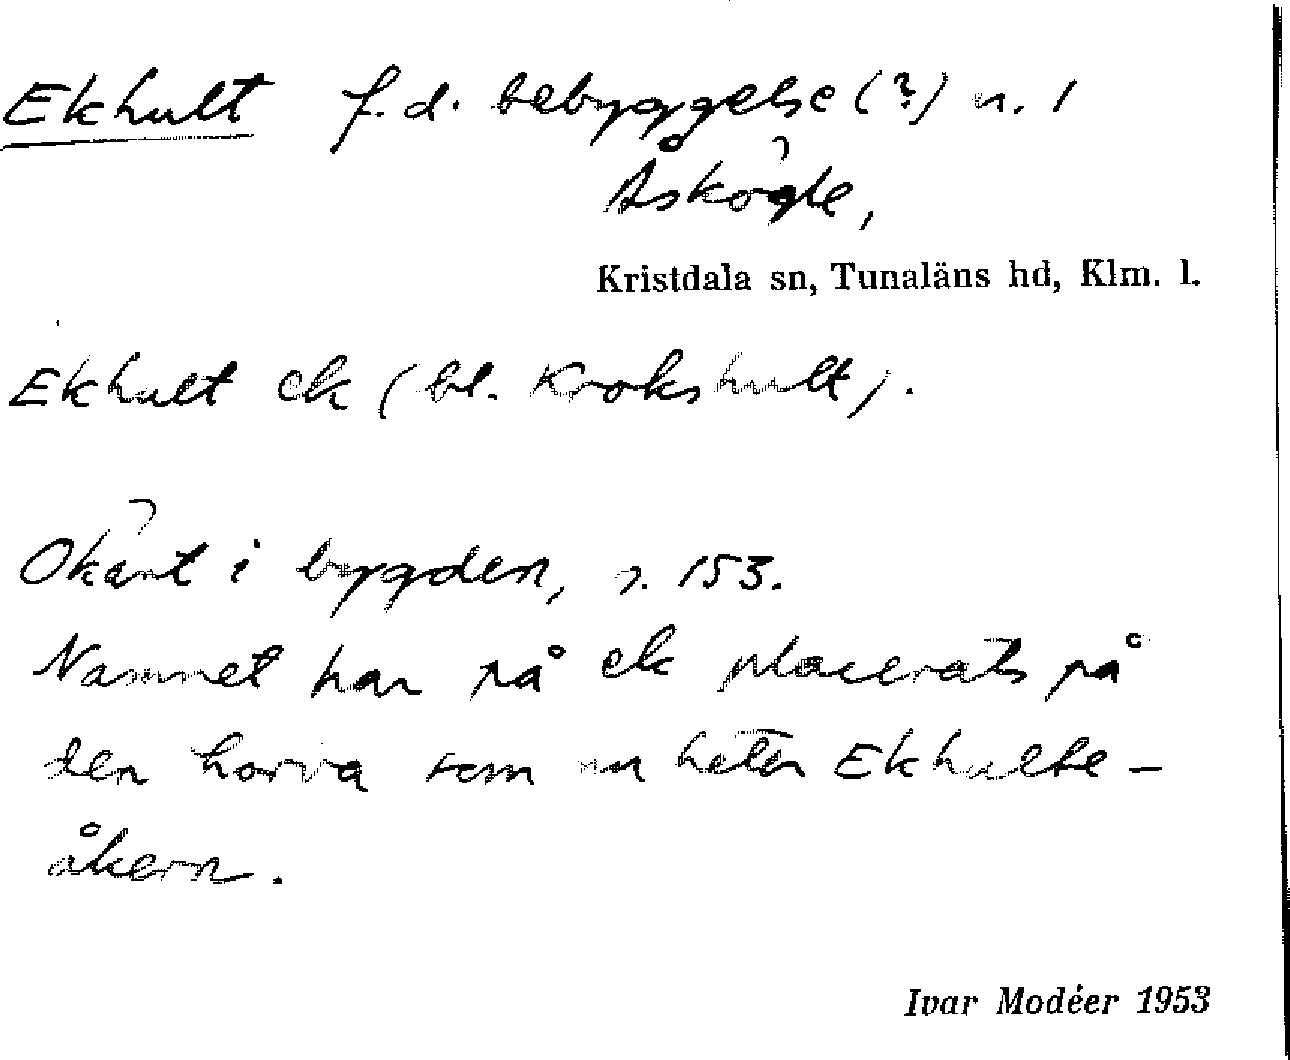 Ekhult f.d. bebyggelse (?) u. 1
Åskögle,
Kristdala sn, Tunaläns hd, Klm. l.
Ekhult ek (bl. Krokshult).
Okänt i bygden, s. 153.
Namnet har på ek placerats på
den horva som nu heter Ekhulte-
åkern.
Ivar Modéer 1953